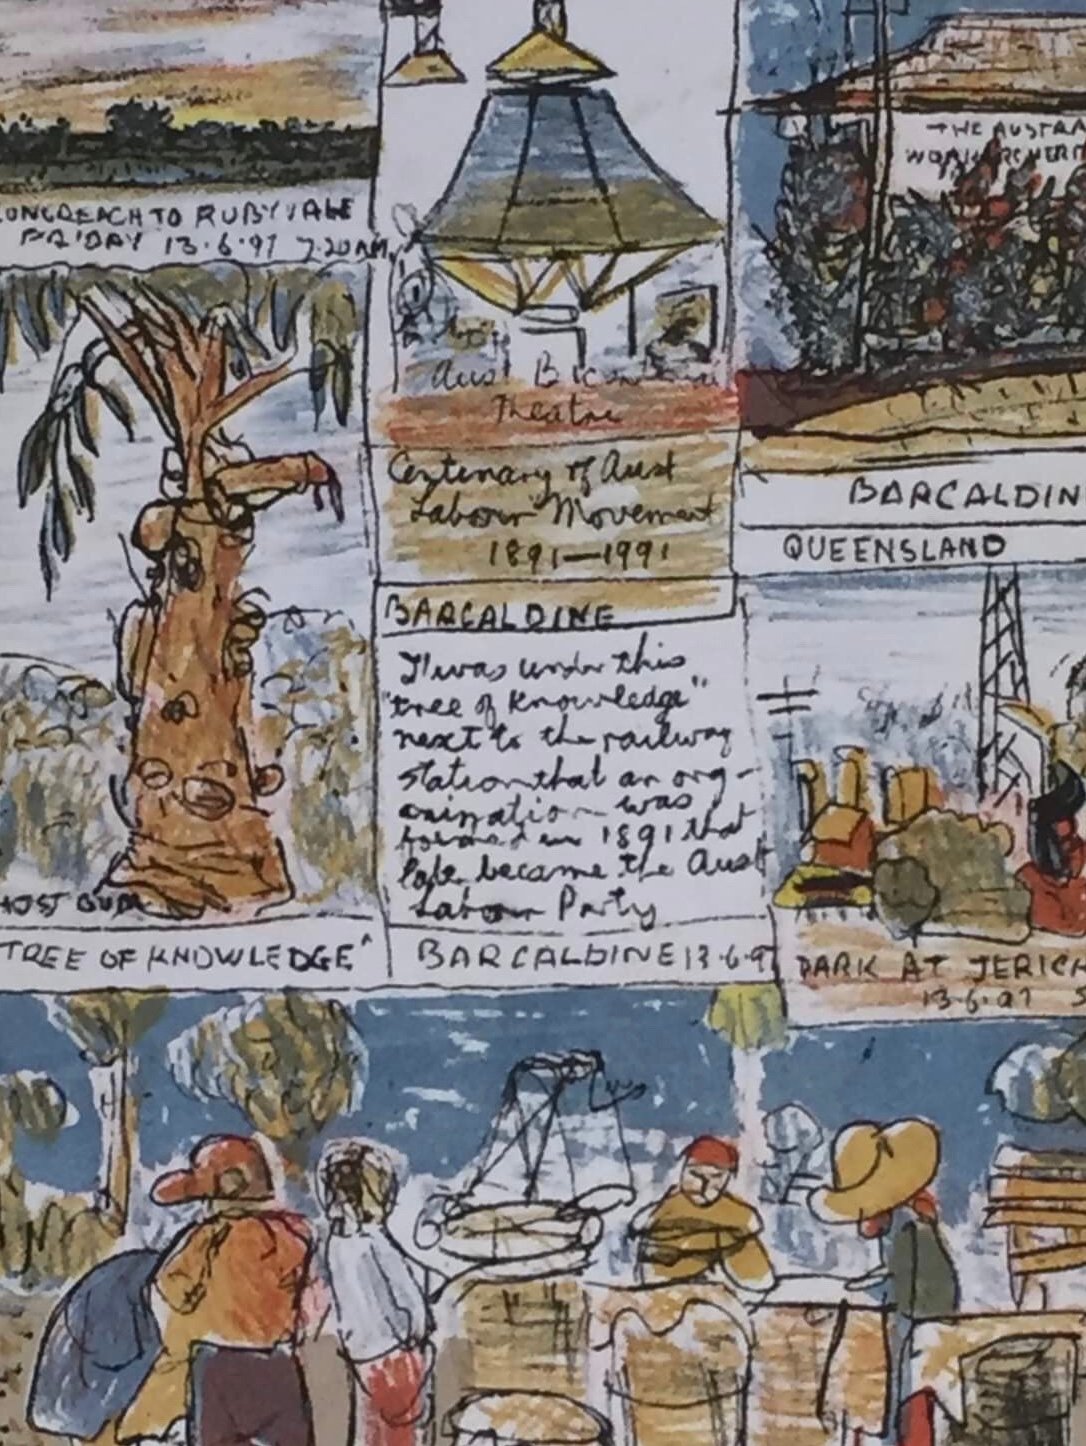 LONGREACH TO RUBYVALE
FRIDAY 13.6.97 7.20 AM
Aust
Theatre
Centenary of Aust
Labour Movement
1891—1991
BARCALDINE
It was under this
"tree of knowledge"
next to the railway
station that an org-
anization was
formed in 1891 that
later became the Aust
Labour Party
BARCALDINE 13.6.97
GUM
"TREE OF KNOWLEDGE"
THE AUSTRA
WORKERS HERIT
BARCALDIN
QUEENSLAND
PARK AT JERICH
13.6.97